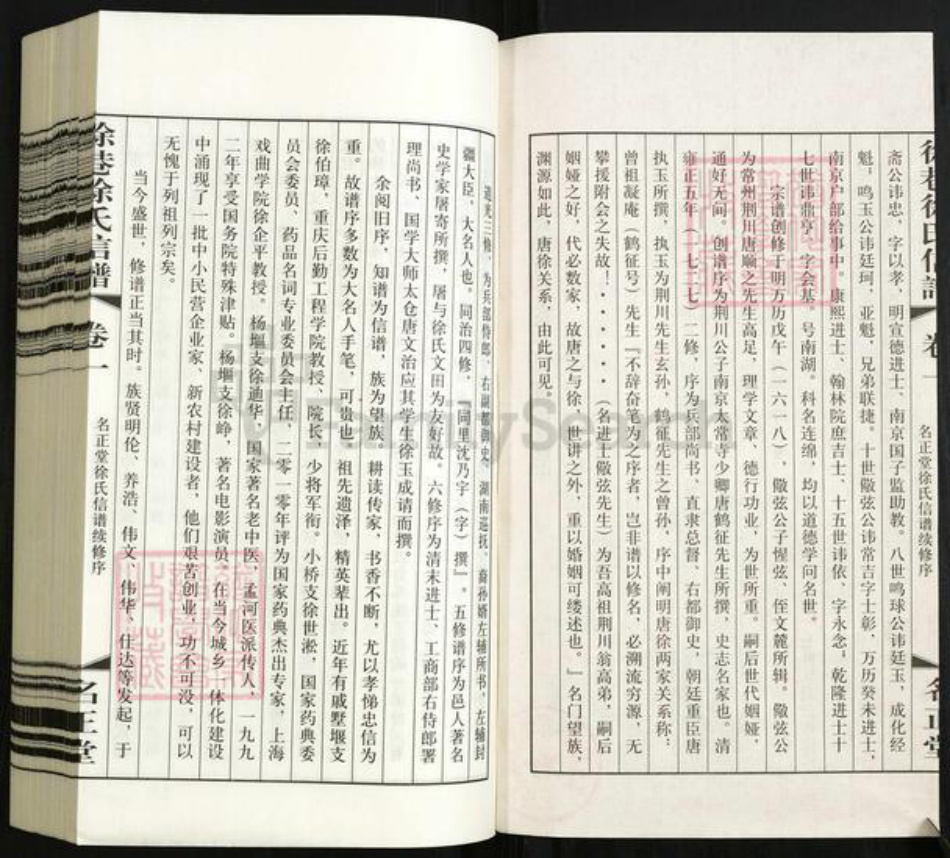 斋公讳忠，字以孝，明宣德进士、南京国子监助教。八世鸣球公讳廷玉，成化经
魁；鸣玉公讳廷珂，亚魁，兄弟联捷。十世儆弦公讳常吉字士彰，万历癸未进士，
南京户部给事中。康熙进士、翰林院庶吉士、十五世讳依、字永念；乾隆进士十
七世讳鼎亨，字会基。号南湖。科名连绵，均以道德学问名世。
宗谱创修于明万历戊午（一六一八），儆弦公子惺弦、侄文麓所辑。儆弦公
为常州荆川唐顺之先生高足，理学文章，德行功业，为世所重。嗣后世代姻娅，
通好无间。创谱序为荆川公子南京太常寺少卿唐鹤征先生所撰，史志名家也。清
雍正五年（一七二七）二修，序为兵部尚书、直隶总督、右都御史，朝廷重臣唐
执玉所撰，执玉为荆川先生玄孙，鹤征先生之曾孙，序中阐明唐徐两家关系称：
曾祖凝庵（鹤征号）先生『不辞奋笔为之序者，岂非谱以修名，必溯流穷源，无
攀援附会之失故！······（名进士儆弦先生）为吾高祖荆川翁高弟，嗣后
姻娅之好，代必数家，故唐之与徐，世讲之外，重以婚姻可缕述也。』名门望族，
渊源如此，唐徐关系，由此可见。
徐巷徐氏信谱
卷一
名正堂徐氏信谱续修序
名正堂
道光三修，为兵部侍郎、右副都御史、湖南巡抚、裔孙婿左辅所书，左辅封
疆大臣，大名人也。同治四修，『同里沈乃字（字）撰』。五修谱序为邑人著名
史学家屠寄所撰，屠与徐氏文田为友好故。六修序为清末进士、工商部右侍郎署
理尚书、国学大师太仓唐文治应其学生徐玉成请而撰。
余阅旧序，知谱为信谱，族为望族。耕读传家，书香不断，尤以孝悌忠信为
重。故谱序多数为大名人手笔，可贵也。祖先遗泽，精英辈出。近年有戚墅堰支
徐伯璋，重庆后勤工程学院教授、院长，少将军衔。小桥支徐世淞，国家药典委
员会委员、药品名词专业委员会主任，二零一零年评为国家药典杰出专家，上海
戏曲学院徐企平教授。杨堰支徐迪华，国家著名老中医，孟河医派传人，一九九
二年享受国务院特殊津贴。杨堰支徐峥，著名电影演员。在当今城乡一体化建设
中涌现了一批中小民营企业家、新农村建设者，他们艰苦创业，功不可没，可以
无愧于列祖列宗矣。
当今盛世，修谱正当其时。族贤明伦、养浩、伟文、伟华、仕达等发起，于
徐巷徐氏信谱
卷一
名正堂徐氏信谱续修序
名正堂
FamilySearch